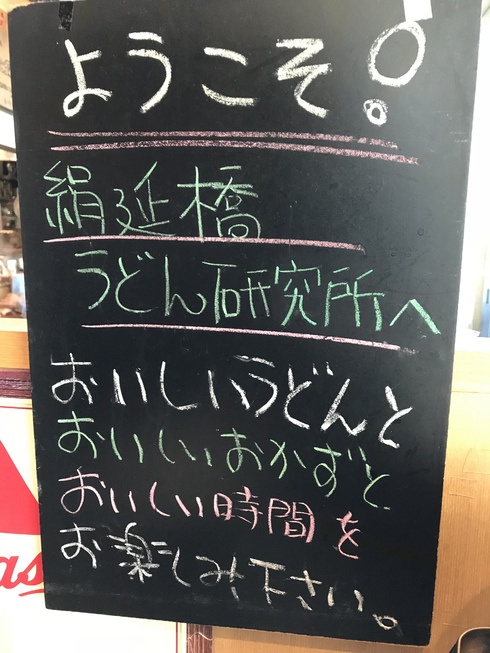 ようこそ!
絹延橋
うどん研究所へ
おいしいうどんと
おいしいおかずと
おいしい時間を
お楽しみ下さい。
as